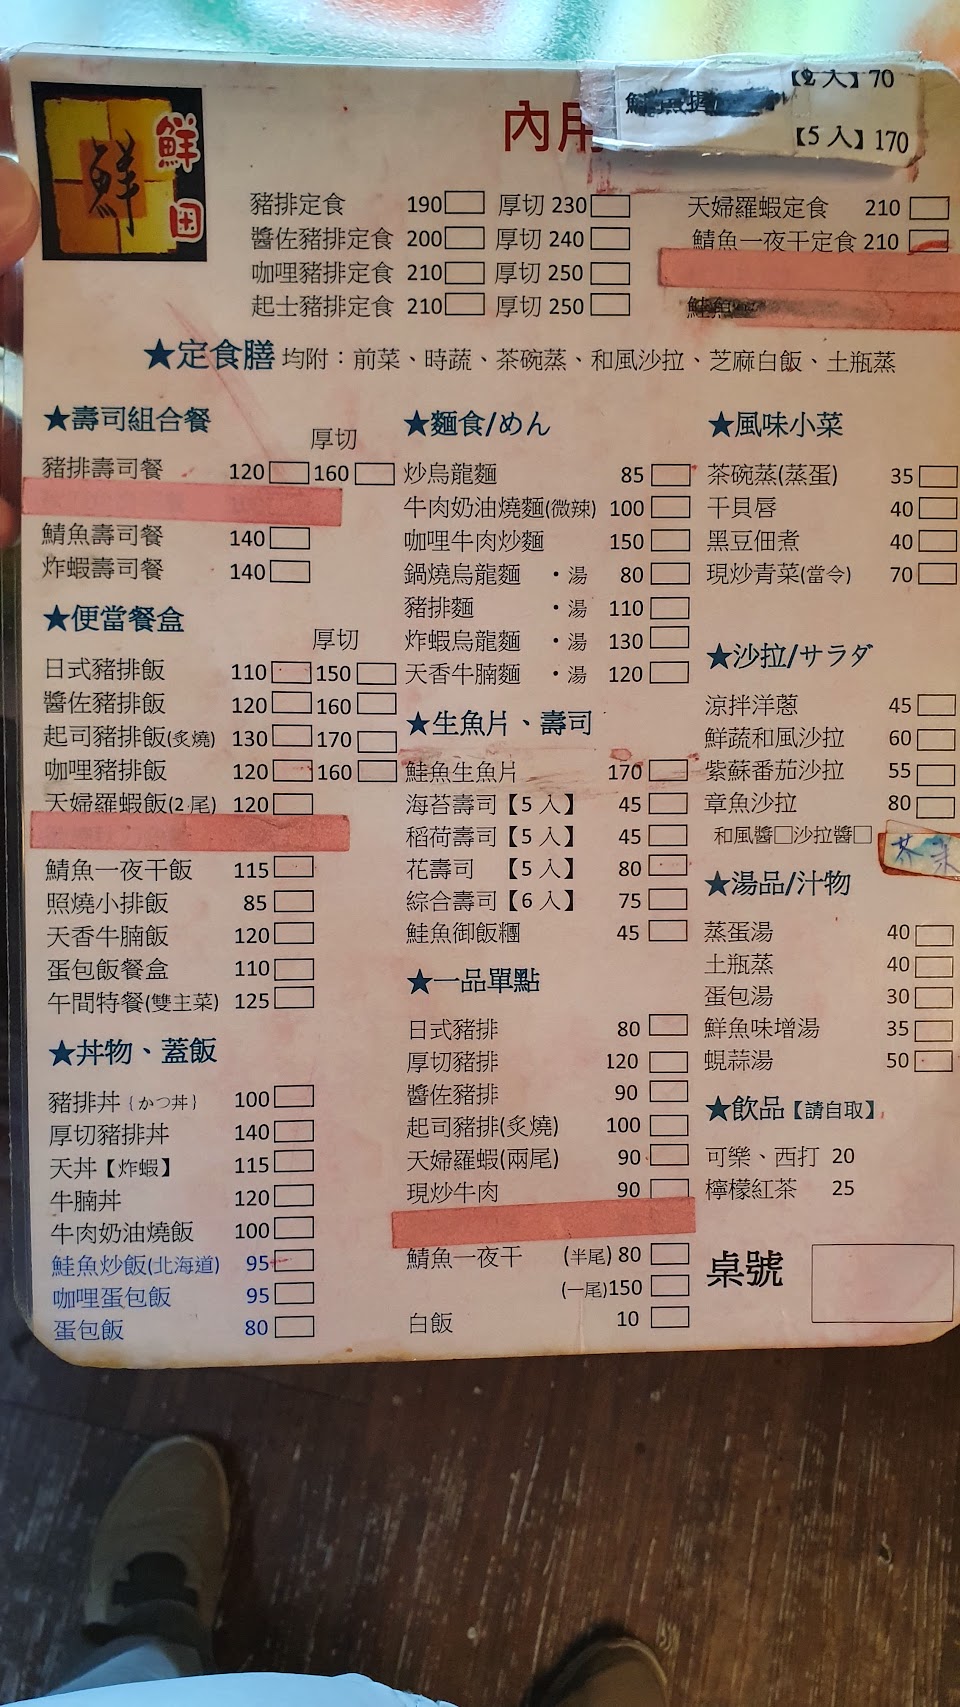 鮮
鮮
困
內用
【2入】70
【5入】170
豬排定食 190 厚切 230
醬佐豬排定食 200 厚切 240
咖哩豬排定食 210 厚切 250
起士豬排定食 210 厚切 250
天婦羅蝦定食 210
鯖魚一夜干定食 210
鮭魚
★定食膳 均附：前菜、時蔬、茶碗蒸、和風沙拉、芝麻白飯、土瓶蒸
★壽司組合餐
厚切
豬排壽司餐 120 160
鯖魚壽司餐 140
炸蝦壽司餐 140
★便當餐盒
厚切
日式豬排飯 110 150
醬佐豬排飯 120 160
起司豬排飯(炙燒) 130 170
咖哩豬排飯 120 160
天婦羅蝦飯(2 尾) 120
鯖魚一夜干飯 115
照燒小排飯 85
天香牛腩飯 120
蛋包飯餐盒 110
午間特餐(雙主菜) 125
★丼物、蓋飯
豬排丼 (かつ丼) 100
厚切豬排丼 140
天丼【炸蝦】 115
牛腩丼 120
牛肉奶油燒飯 100
鮭魚炒飯(北海道) 95
咖哩蛋包飯 95
蛋包飯 80
★麵食/めん
炒烏龍麵 85
牛肉奶油燒麵(微辣) 100
咖哩牛肉炒麵 150
鍋燒烏龍麵 ・湯 80
豬排麵 ・湯 110
炸蝦烏龍麵 ・湯 130
天香牛腩麵 ・湯 120
★生魚片、壽司
鮭魚生魚片 170
海苔壽司【5 入】 45
稻荷壽司【5 入】 45
花壽司 【5 入】 80
綜合壽司【6 入】 75
鮭魚御飯糰 45
★一品單點
日式豬排 80
厚切豬排 120
醬佐豬排 90
起司豬排(炙燒) 100
天婦羅蝦(兩尾) 90
現炒牛肉 90
鯖魚一夜干 (半尾) 80
(一尾)150
白飯 10
★風味小菜
茶碗蒸(蒸蛋) 35
干貝唇 40
黑豆佃煮 40
現炒青菜(當令) 70
★沙拉/サラダ
涼拌洋蔥 45
鮮蔬和風沙拉 60
紫蘇番茄沙拉 55
章魚沙拉 80
和風醬□沙拉醬□
芥末
★湯品/汁物
蒸蛋湯 40
土瓶蒸 40
蛋包湯 30
鮮魚味增湯 35
蜆蒜湯 50
★飲品【請自取】
可樂、西打 20
檸檬紅茶 25
桌號